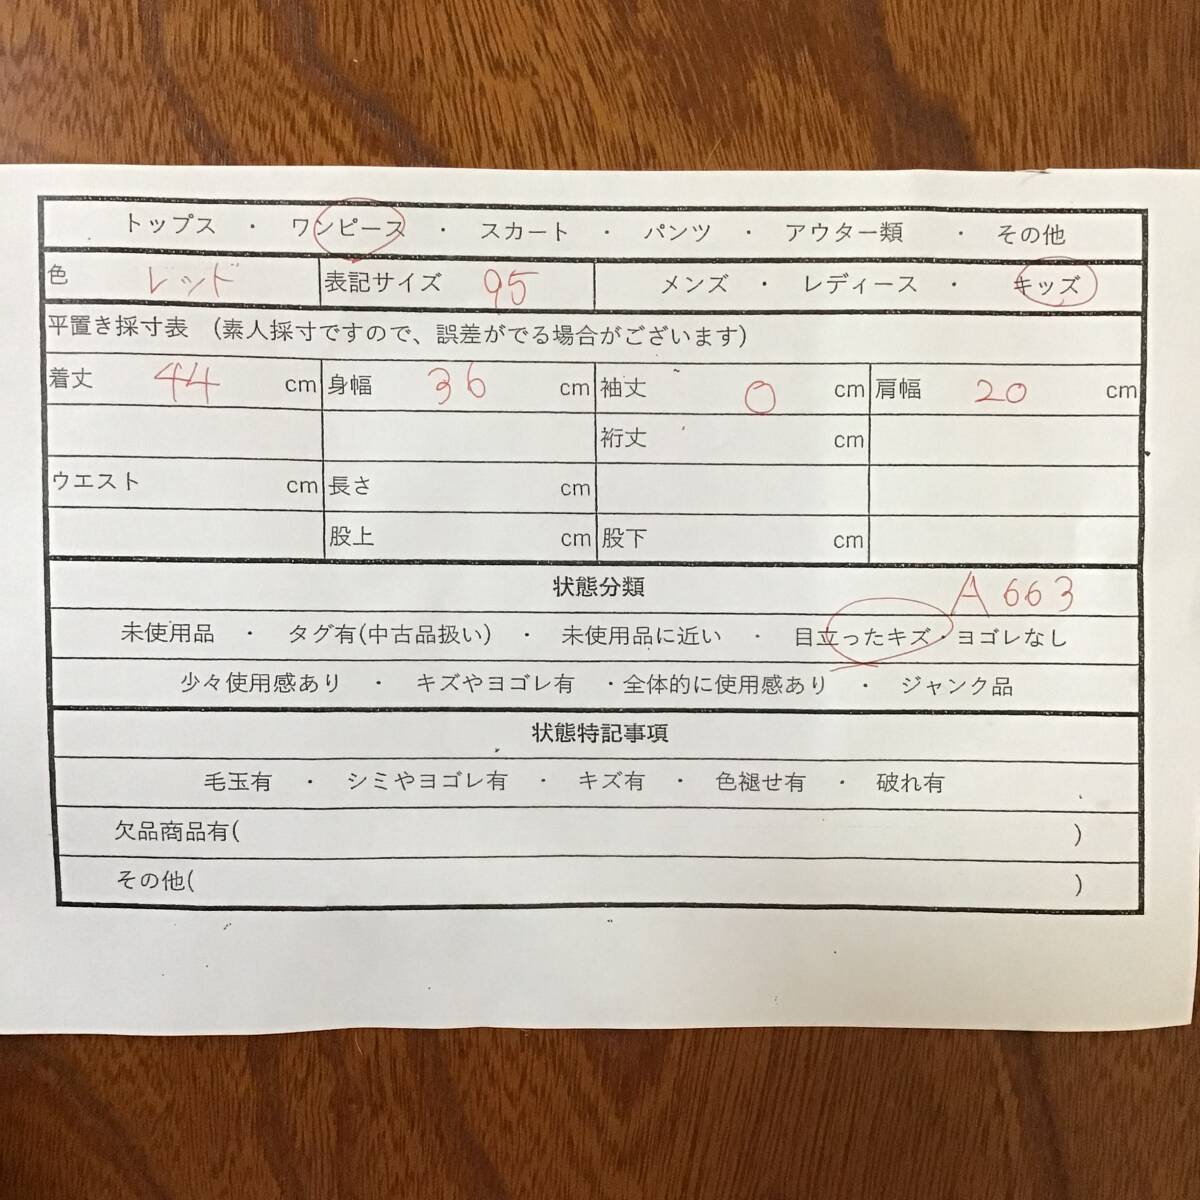 トップス ・ ワンピース ・ スカート ・ パンツ ・ アウター類 ・ その他
色 レッド 表記サイズ 95 メンズ ・ レディース ・ キッズ
平置き採寸表 (素人採寸ですので、誤差がでる場合がございます)
着丈 44 cm 身幅 36 cm 袖丈 0 cm 肩幅 20 cm
裄丈 cm
ウエスト cm 長さ cm
股上 cm 股下 cm
状態分類 A663
未使用品 ・ タグ有(中古品扱い) ・ 未使用品に近い ・ 目立ったキズ・ヨゴレなし
少々使用感あり ・ キズやヨゴレ有 ・全体的に使用感あり ・ ジャンク品
状態特記事項
毛玉有 ・ シミやヨゴレ有 ・ キズ有 ・ 色褪せ有 ・ 破れ有
欠品商品有( )
その他( )